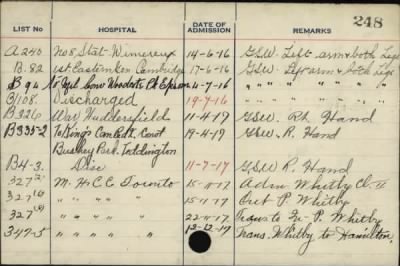 248
LIST No HOSPITAL DATE OF ADMISSION REMARKS
A 240 No 8 Stat. Wimereux 14-6-16 GSW Left arm & both Legs
B. 82 1st Eastern Gen Cambridge 17-6-16 GSW Left arm & both Legs
B 94 Conv Woodcote Pk Epsom -7-16 " " " " "
B108. Discharged 19-7-16 " " " " "
B326 War Huddersfield 11-4-19 GSW. Rt Hand
B335-2 To King's Can Red X Conv 19-4-19 GSW. R. Hand
Bushey Park. Teddington
B4-3. Disc 11-7-17 GSW R. Hand
327 M. H C.C Toronto 15-11-17 Adm Whitby Cl-II
327 " " " " 15-11-17 Out P Whitby
327 " " " " 22-11-17 Trans to In-P. Whitby
347-5 " " " " 12-12-17 Trans. Whitby to Hamilton.